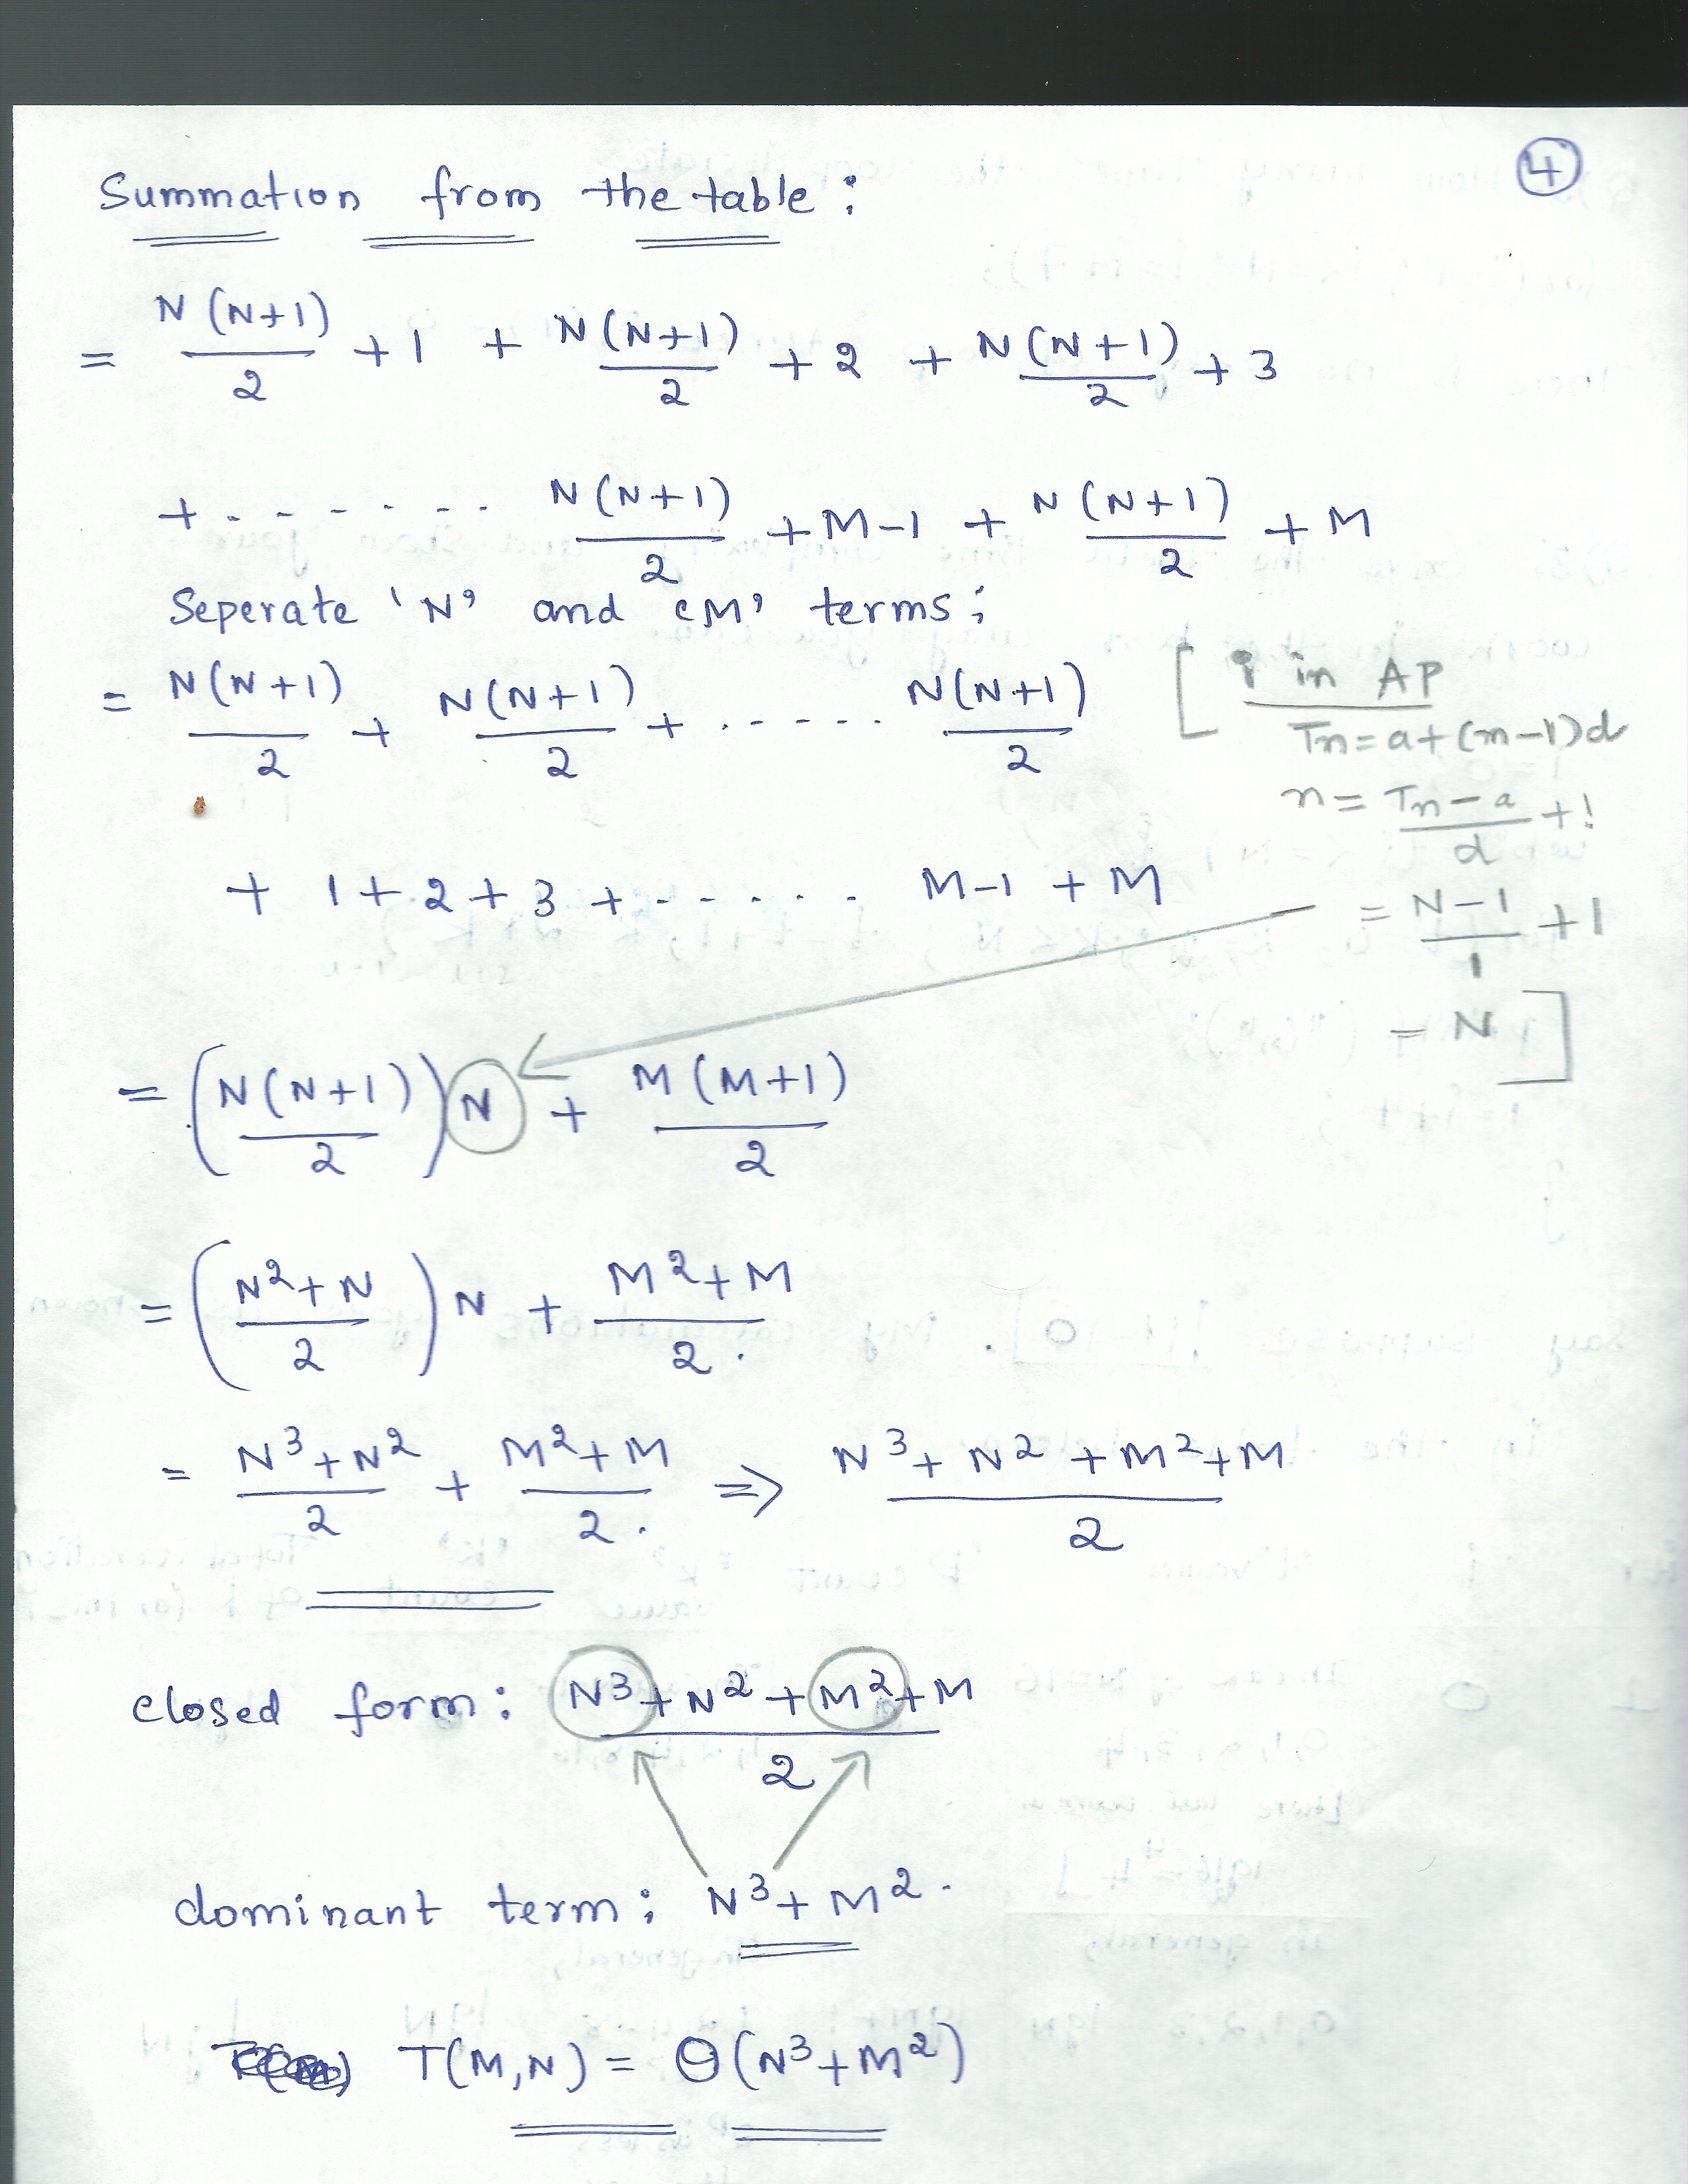 4
Summation from the table:
= N(N+1)/2 + 1 + N(N+1)/2 + 2 + N(N+1)/2 + 3
+ - - - - - - N(N+1)/2 + M-1 + N(N+1)/2 + M
Seperate 'N' and 'M' terms:
= N(N+1)/2 + N(N+1)/2 + ...... N(N+1)/2
[ i in AP
Tn = a+(n-1)d
n = (Tn - a)/d + 1
= (N-1)/1 + 1
= N ]
+ 1+2+3+ - - - - - M-1 + M
= (N(N+1)/2) N + M(M+1)/2
= ((N²+N)/2) N + (M²+M)/2.
= (N³+N²)/2 + (M²+M)/2. => (N³+N²+M²+M)/2
closed form: (N³+N²+M²+M)/2
dominant term: N³+M².
T(M,N) = Θ(N³+M²)